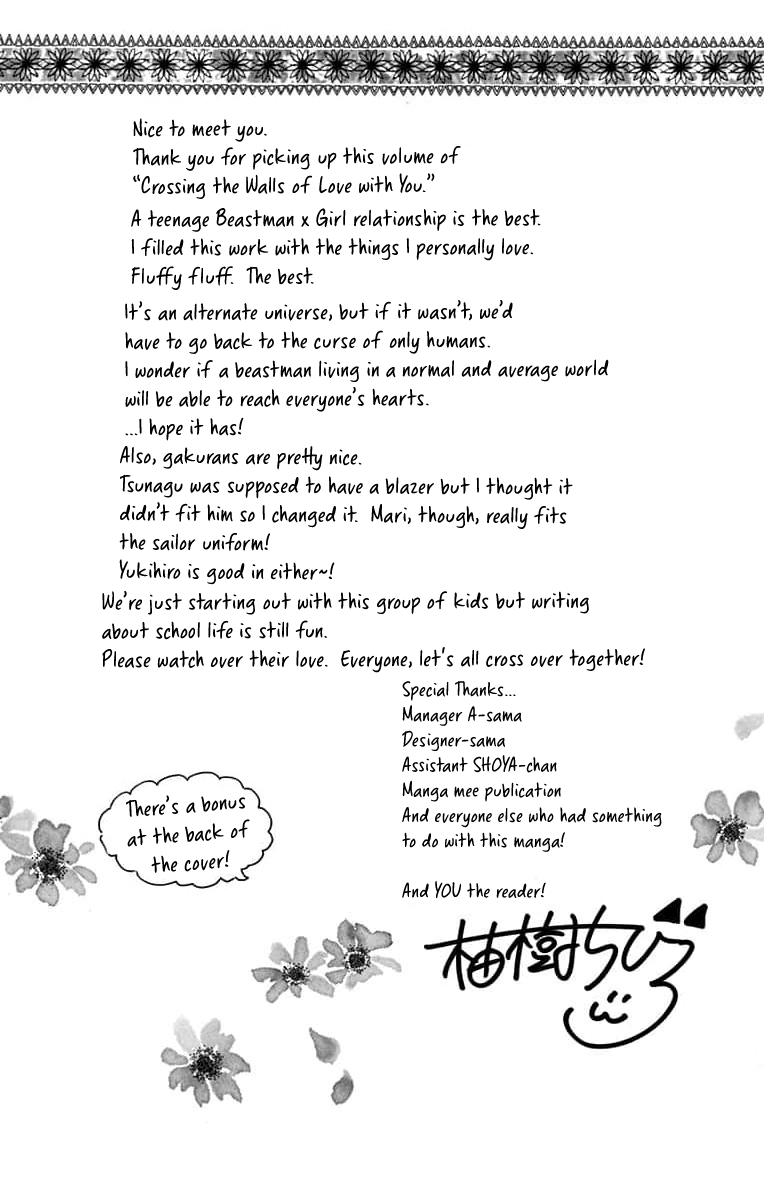 Nice to meet you.
Thank you for picking up this volume of
"Crossing the Walls of Love with You."
A teenage Beastman x Girl relationship is the best.
I filled this work with the things I personally love.
Fluffy fluff. The best.
It's an alternate universe, but if it wasn't, we'd
have to go back to the curse of only humans.
I wonder if a beastman living in a normal and average world
will be able to reach everyone's hearts.
...I hope it has!
Also, gakurans are pretty nice.
Tsunagu was supposed to have a blazer but I thought it
didn't fit him so I changed it. Mari, though, really fits
the sailor uniform!
Yukihiro is good in either~!
We're just starting out with this group of kids but writing
about school life is still fun.
Please watch over their love. Everyone, let's all cross over together!
Special Thanks...
Manager A-sama
Designer-sama
Assistant SHOYA-chan
Manga mee publication
And everyone else who had something
to do with this manga!
And YOU the reader!
There's a bonus
at the back of
the cover!
柚樹ちひろ